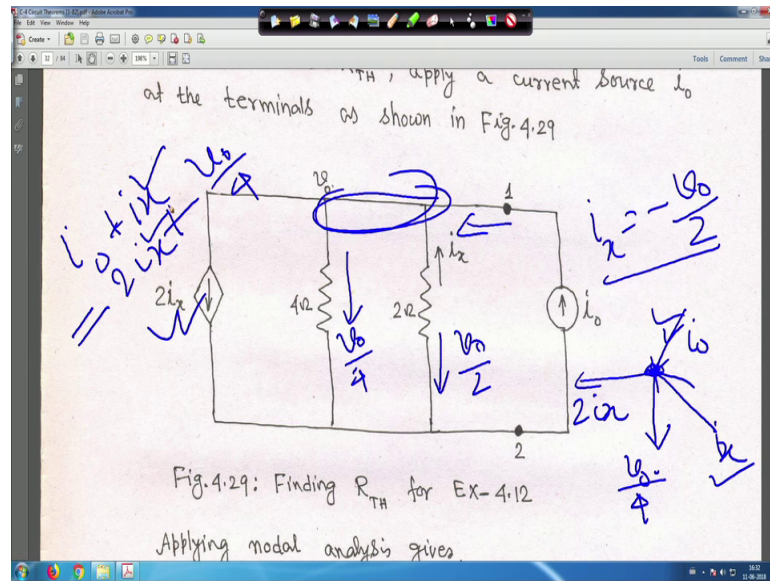 C-4 Circuit Theorems [1-82].pdf - Adobe Acrobat Pro
File Edit View Window Help
Create
32 / 84
196%
Tools Comment Share
R_TH, apply a current source i₀
at the terminals as shown in Fig. 4.29
i₀ + ix
2ix + v₀/4
v₀
1
iₓ
iₓ = -v₀/2
2iₓ
4Ω
2Ω
i₀
v₀/4
v₀/2
i₀
2ix
ix
v₀/4
2
Fig. 4.29: Finding R_TH for EX-4.12
Applying nodal analysis gives
16:32
11-06-2018